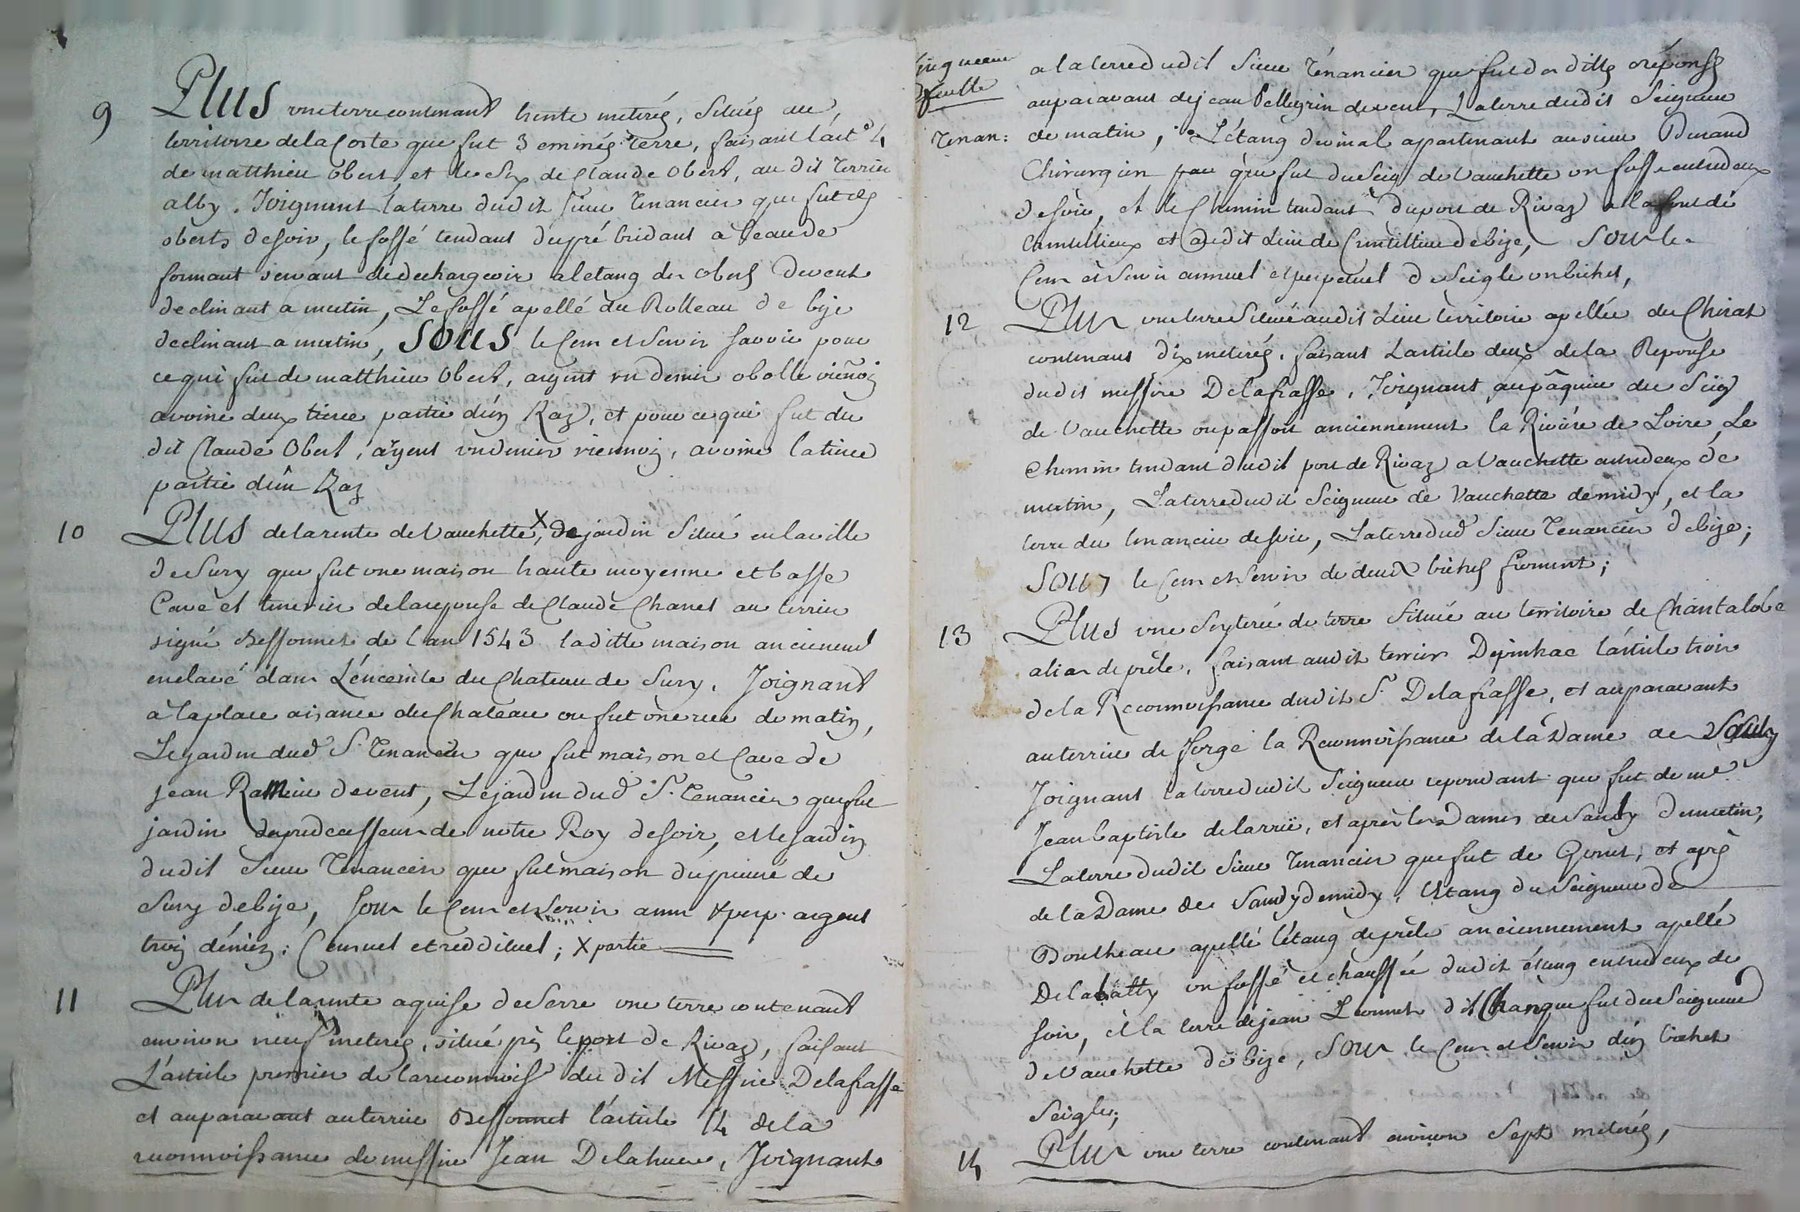 9 Plus une terre contenant trente meterés, Située au
territoire de la Coste que fut 3 eminés terre, faisant l'art. 4
de matthieu Obert et le Six de Claude Obert, au dit Terrier
alby. Joignant la terre dudit Sieur Tenancier que fut des
oberts de soir, le fossé tendant du pré bridant a
formant servant de dechargeoir a letang des Obert de vent
declinant a matin, Le fossé apellé du Rolleau de bize
declinant a matin, SOUS le Cens et Servis Savoir pour
ce qui fut de matthieu Obert, argent un denier obolle viennois
avoine deux tierce partie d'un Raz, et pour ce qui fut du
dit Claude Obert, argent un denier viennois, avoine la tierce
partie d'un Raz
10 Plus de la rente de Vauchette, X de jardin Situé en la ville
de Sury que fut une maison haute moyenne et basse
Cave et de la reponse de Claude Chanet au terrier
signé Bessonnet de l'an 1543 la ditte maison anciennemt
enclavé dans L'enceinte du Chateau de Sury. Joignant
a la place aisance du Chateau ou fut une rue de matin,
Le jardin dud. Sr. Tenancier que fut maison et Cave de
jean de vent, Le jardin dud. Sr. Tenancier que fut
jardin de notre Roy de soir, et le jardin
dudit Sieur Tenancier que fut maison du prieuré de
Sury de bize, Sous le Cens et Servis ann. & perp. argent
trois deniers: Censuel et reddituel; X partie
11 Plus de la rente aquise de Serre une terre contenant
environ neuf meterés, situé près le port de Rivaz, faisant
L'article premier de la reconnoiss. du dit Messire Delafrasse
et auparavant au terrier Bessonnet l'article 14 de la
reconnoissance de messire Jean Delahuere, Joignant
a la terre dudit Sieur Tenancier que fut
auparavant de jean Pellegrin de vent, La terre dudit Seigneur
Tenan: de matin, L'étang du mal apartenant au sieur Durand
Chirurgien que fut du Seigr. de Vauchette un fossé entredeux
de soir, et le Chemin tendant du port de Rivaz a la font de
et audit Lieu de de bize, Sous le
Cens et Servis annuel et perpetuel de Seigle un bichet,
12 Plus une terre Située audit Lieu territoire apellée du Chirat
contenant dix meterés, faisant L'article deux de la Reponse
dudit messire Delafrasse, Joignant au pâquier du Seigr
de Vauchette ou passoit anciennement la Rivière de Loire, Le
Chemin tendant dudit port de Rivaz a Vauchette entredeux de
matin, La terre dudit Seigneur de Vauchette de midy, et la
terre du tenancier de soir, La terre dud. Sieur Tenancier de bize;
Sous le Cens et Servis de deux bichets froment;
13 Plus une Seyterée de terre Située au territoire de Chantalobe
alias de prêle, faisant audit terrier Depinhac l'article trois
de la Reconnoissance dudit Sr. Delafrasse, et auparavant
au terrier de forge la Reconnoissance de la Dame de
Joignant la terre dudit Seigneur repondant que fut de me.
Jean baptiste delarrie, et après les Dames de de matin,
La terre dudit Sieur Tenancier que fut de et après
de la Dame de de midy, l'Etang du Seigneur de
apellé l'étang de prêle anciennement apellé
De un fossé et chaussée dudit étang entredeux de
soir, et la terre de jean dit que fut du Seigneur
de Vauchette de bize, Sous le Cens et Servis d'un bichet
Seigle;
14 Plus une terre contenant environ Sept meterés,